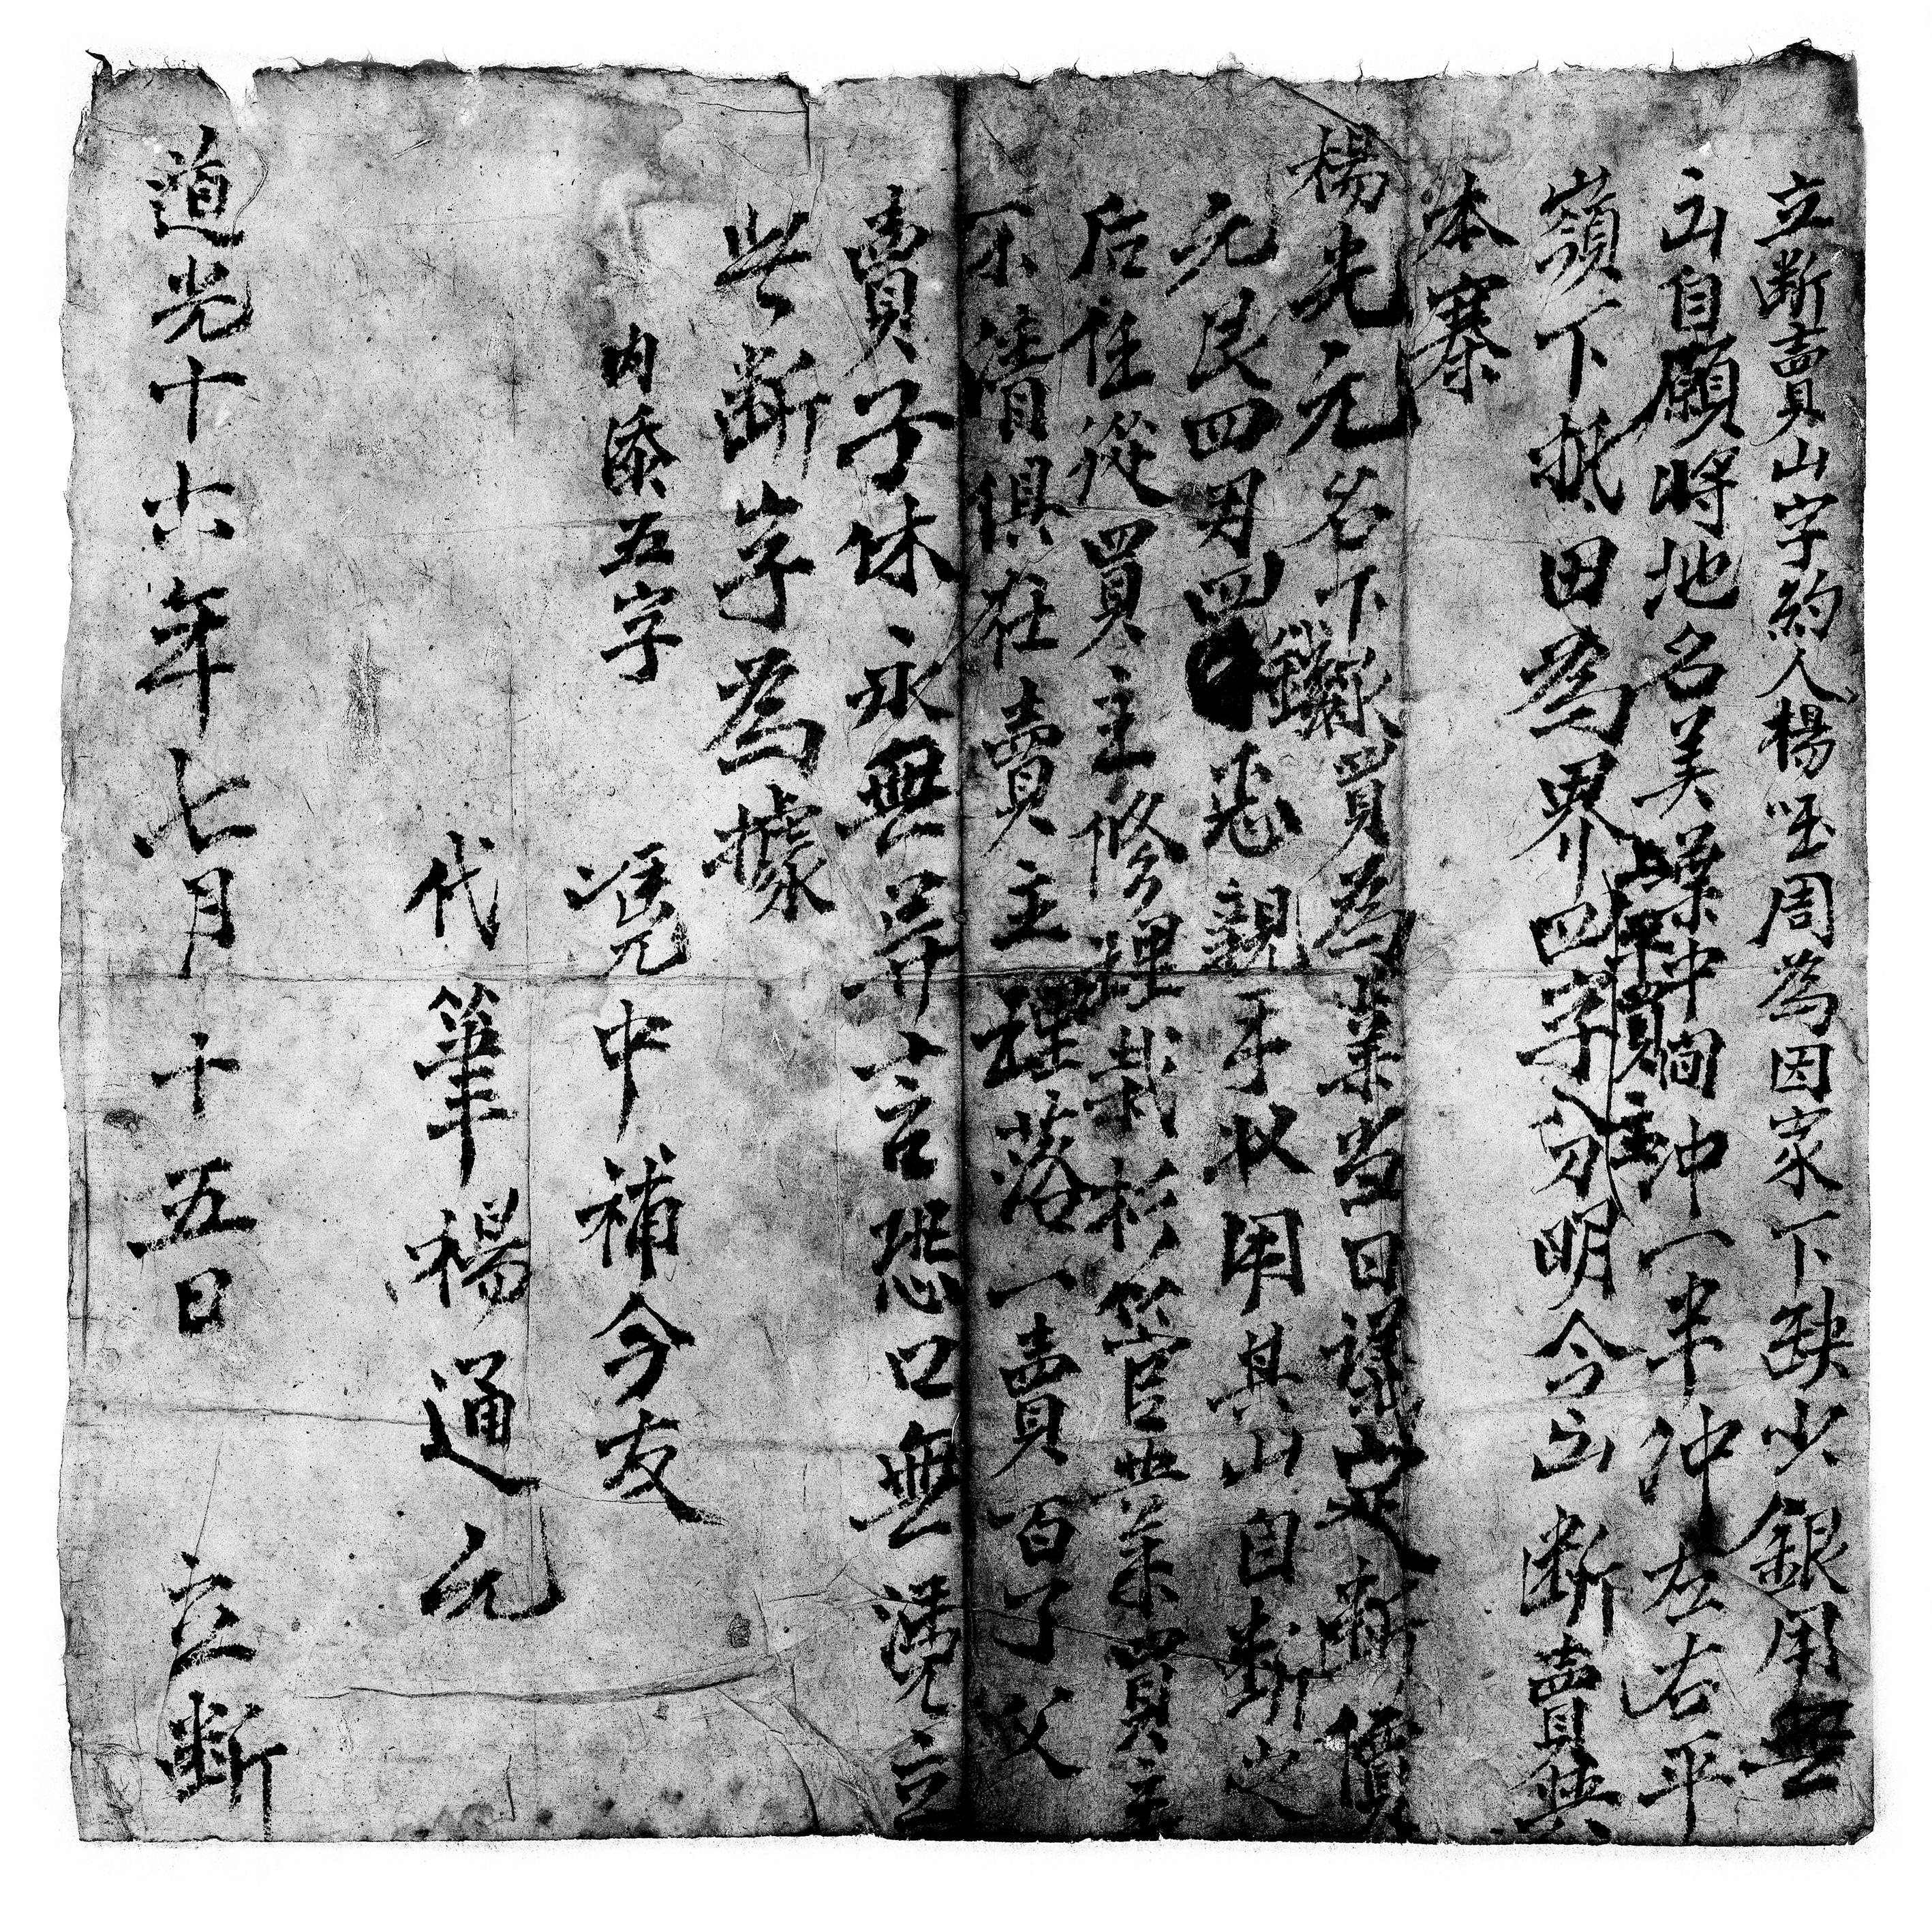 立断賣山字約人楊周為因家下缺少銀用無
出自願將地名美冲一半冲左右平
上平買主
嶺下抵田為界四字分明今出断賣與
本寨
楊光元名下承買為業当日議定断價
元艮四男四親手收用其山自断之
后任從買主修理栽杉管業買主
不清俱在賣主理落一賣百了父
賣子休永無異言恐口無憑立
此断字為據
内添五字
憑中補今友
代筆楊通元
道光十六年七月十五日 立断